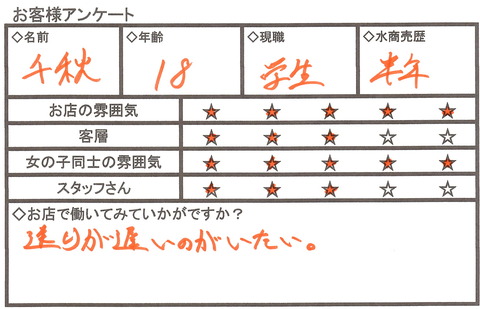 お客様アンケート
◇名前 ◇年齢 ◇現職 ◇水商売歴
千秋 18 学生 半年
お店の雰囲気 ★ ★ ★ ★ ★
客層 ★ ★ ★ ☆ ☆
女の子同士の雰囲気 ★ ★ ★ ★ ★
スタッフさん ★ ★ ★ ☆ ☆
◇お店で働いてみていかがですか？
送りが遅いのがいたい。